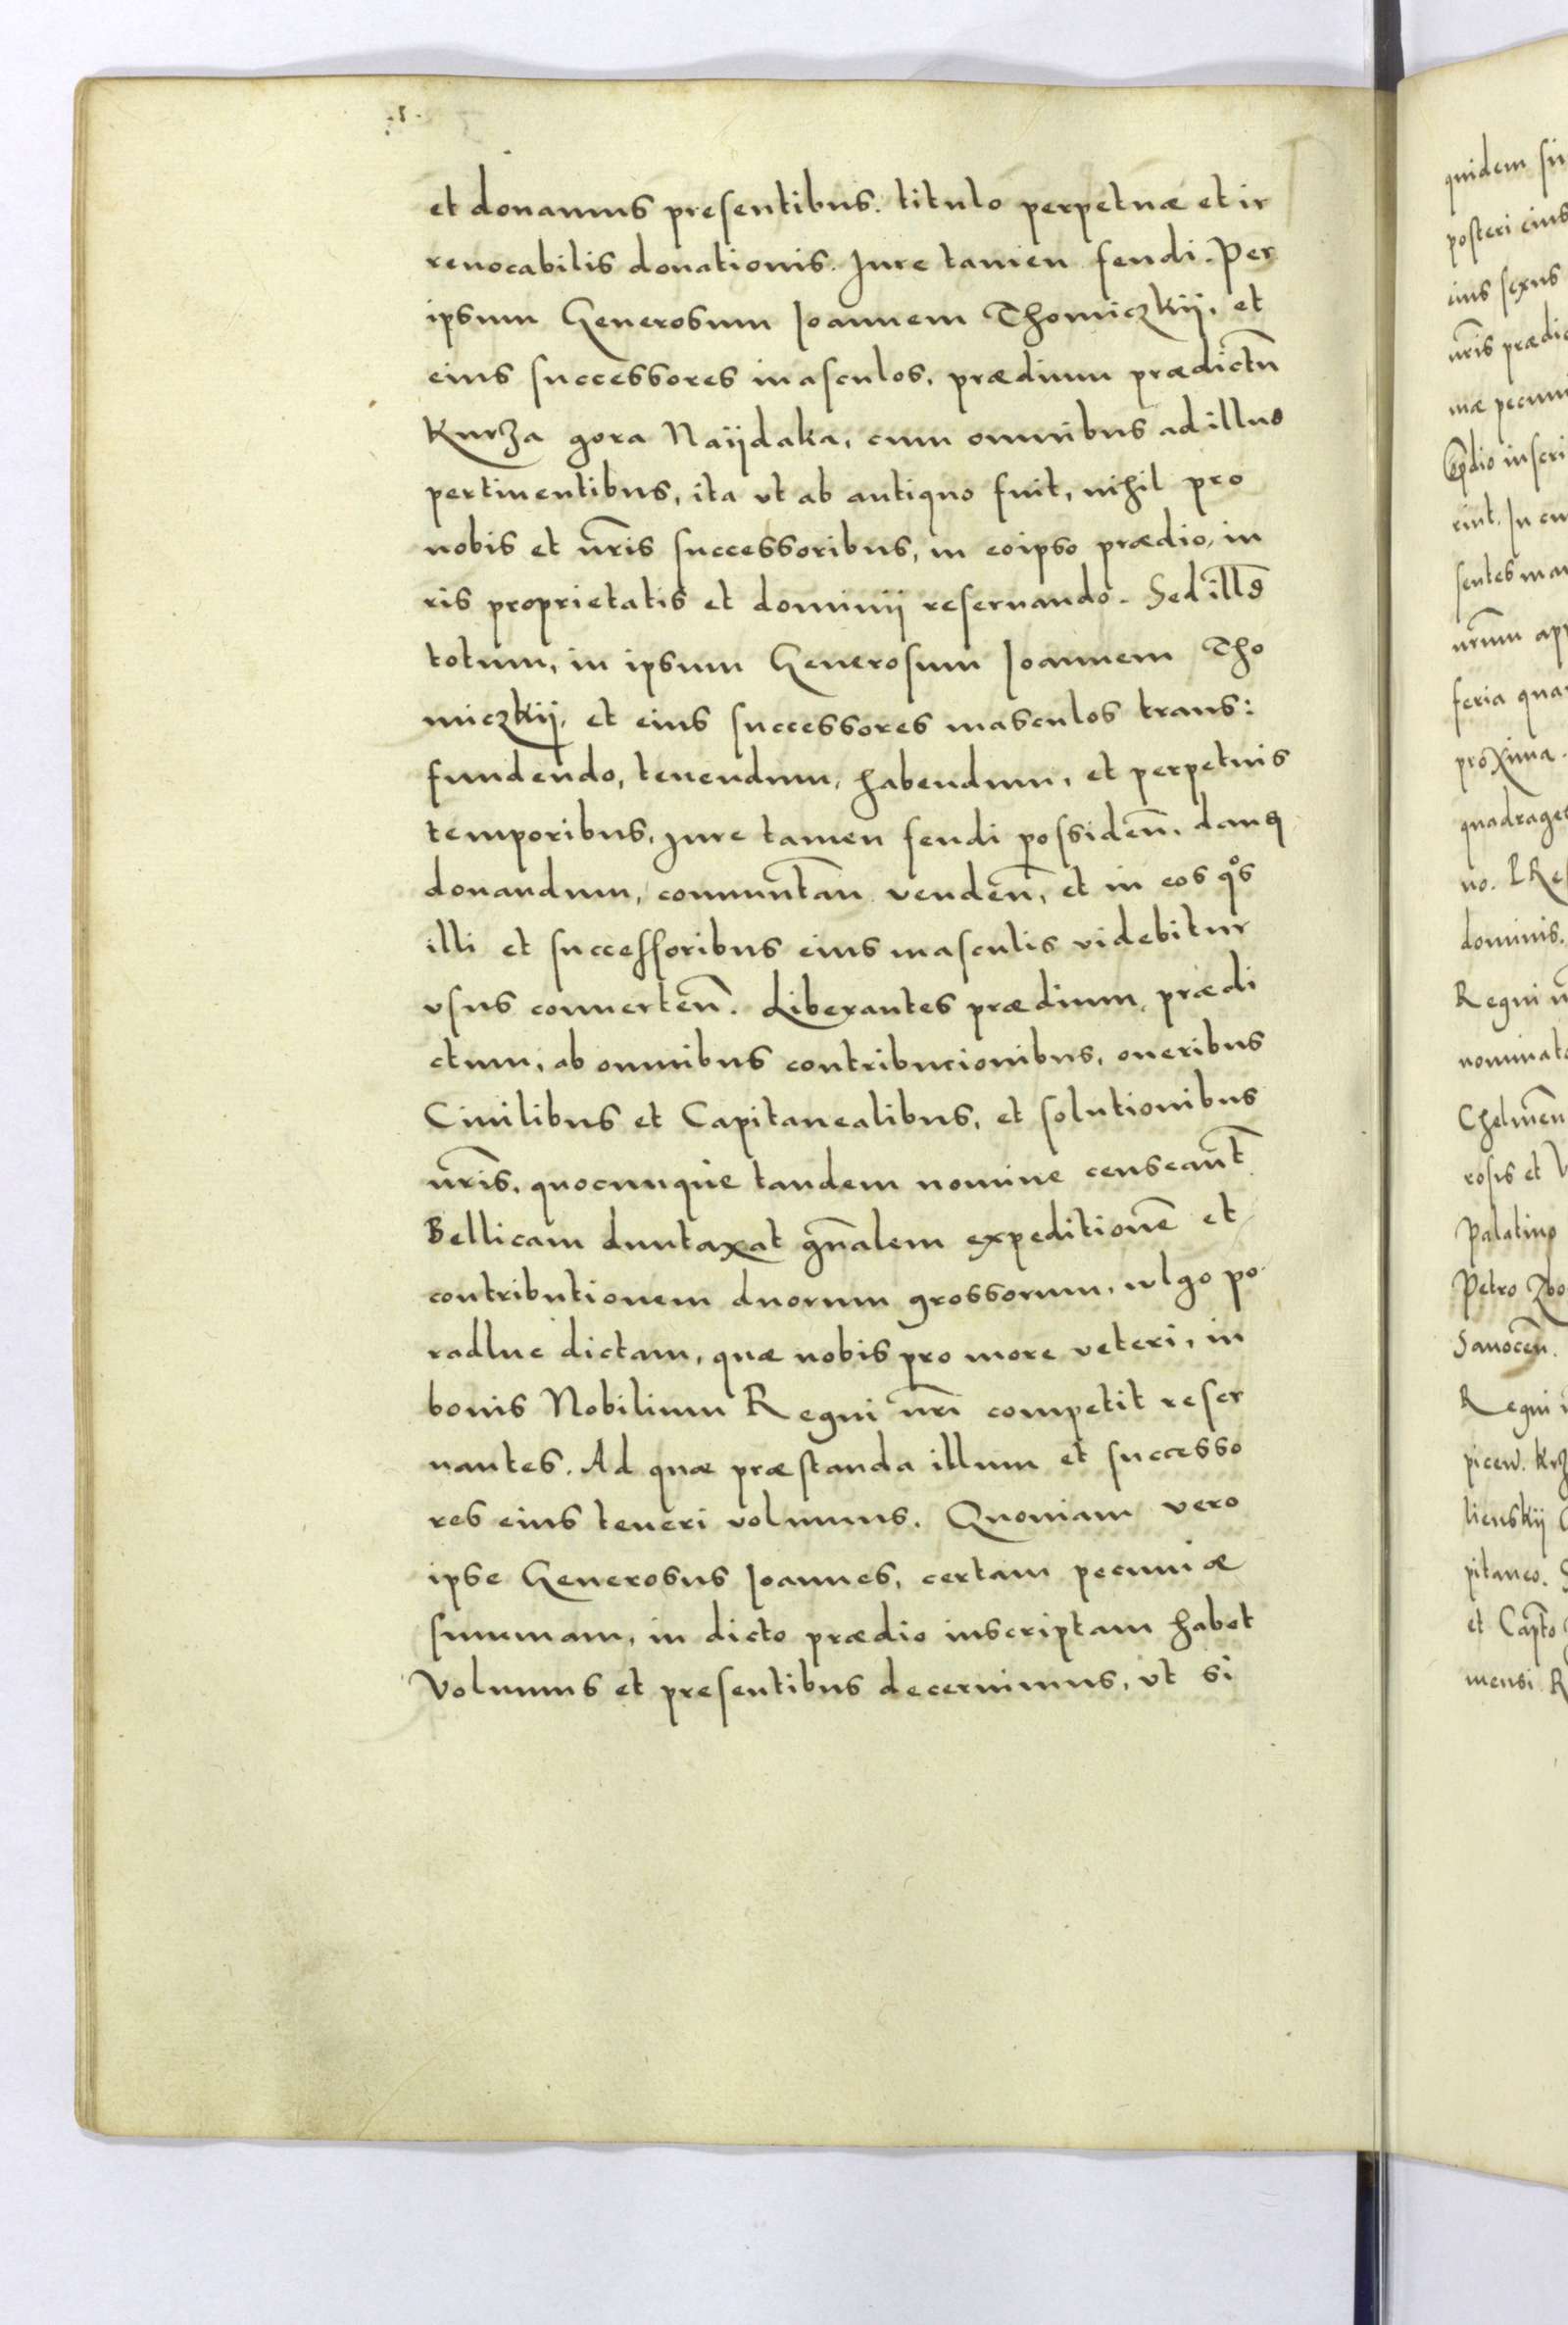 et donamus presentibus. titulo perpetuæ et ir
reuocabilis donationis. Jure tamen feudi. Per
ipsum Generosum Ioannem Thomiczkij, et
eius successores masculos, prædium prædictũ
Kurza gora Naijdaka, cum omnibus ad illud
pertinentibus, ita vt ab antiquo fuit, nihil pro
nobis et nr̃is successoribus, in eoipso prædio, iu
ris proprietatis et dominij reseruando. Sed illd̃
totum, in ipsum Generosum Ioannem Tho
miczkij, et eius successores masculos trans:
fundendo, tenendum, habendum, et perpetuis
temporibus, Jure tamen feudi possideñ. dañ
donandum, commũtan vendeñ, et in eos qͦs
illi et successoribus eius masculis videbitur
vsus conuerteñ. Liberantes prædium prædi
ctum, ab omnibus contribucionibus, oneribus
Ciuilibus et Capitanealibus, et solutionibus
nr̃is, quocunque tandem nomine censeant̃
Bellicam duntaxat gñalem expeditionẽ et
contributionem duorum grossorum, vulgo po
radlne dictam, quæ nobis pro more veteri, in
bonis Nobilium Regni nr̃i competit reser
uantes. Ad quæ præstanda illum et successo
res eius teneri volumus. Quoniam vero
ipse Generosus Ioannes, certam pecuniæ
summam, in dicto prædio inscriptam habet
Volumus et presentibus decernimus, vt si
quidem
posteri eius
eius sexus
nr̃is
mæ
rint. In
sentes
nr̃um
feria
proxima.
no.
dominis.
Regni
rosis et
Palatino
Petro
Sanoceñ.
Regni
pitaneo.
et
mensi